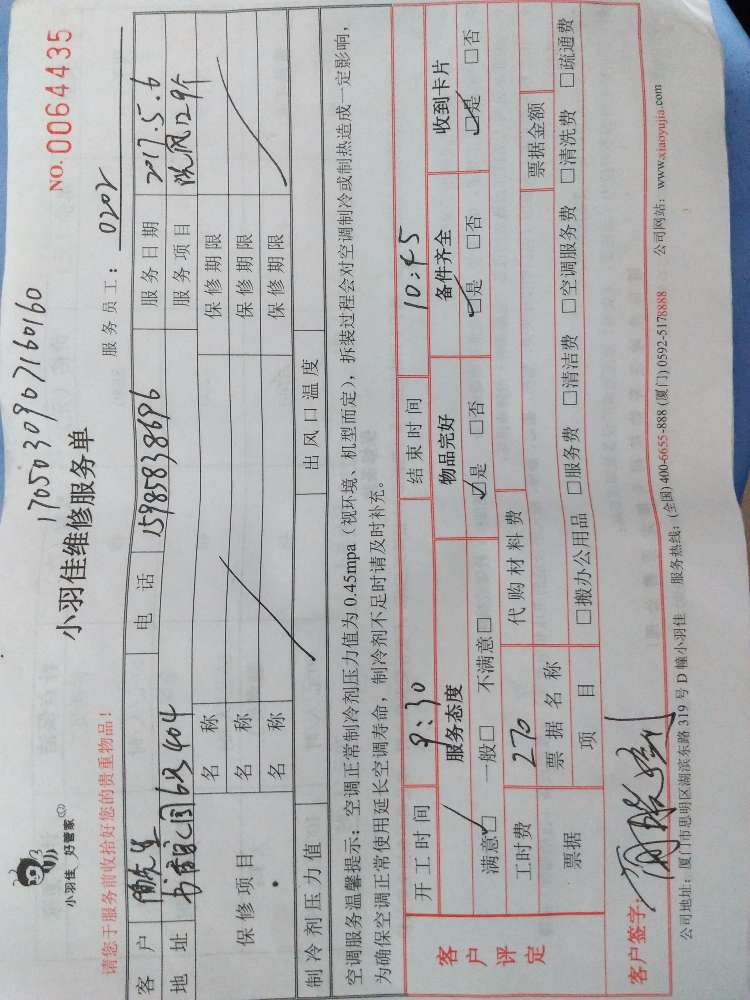 1705030907160160
小羽佳 好管家
小羽佳维修服务单
NO. 0064435
请您于服务前收拾好您的贵重物品！
服务员工： 0202
客户 先生 电话 15985838696 服务日期 2017.5.6
地址 书香家园63 404 服务项目 洗风口9个
保修项目 名称 保修期限
名称 保修期限
名称 保修期限
制冷剂压力值 出风口温度
空调服务温馨提示：空调正常制冷剂压力值为 0.45mpa（视环境、机型而定），拆装过程会对空调制冷或制热造成一定影响，
为确保空调正常使用延长空调寿命，制冷剂不足时请及时补充。
客户评定 开工时间 9:30 结束时间 10:45
服务态度 物品完好 备件齐全 收到卡片
满意☑ 一般□ 不满意□ ☑是 □否 ☑是 □否 ☑是 □否
工时费 270 代购材料费
票据 票据名称 票据金额
项目 □搬办公用品 □服务费 □清洁费 □空调服务费 □清洗费 □疏通费
客户签字：
公司地址：厦门市思明区湖滨东路 319 号 D 幢小羽佳 服务热线：(全国) 400-6655-888 (厦门) 0592-5178888 公司网站：www.xiaoyujia.com